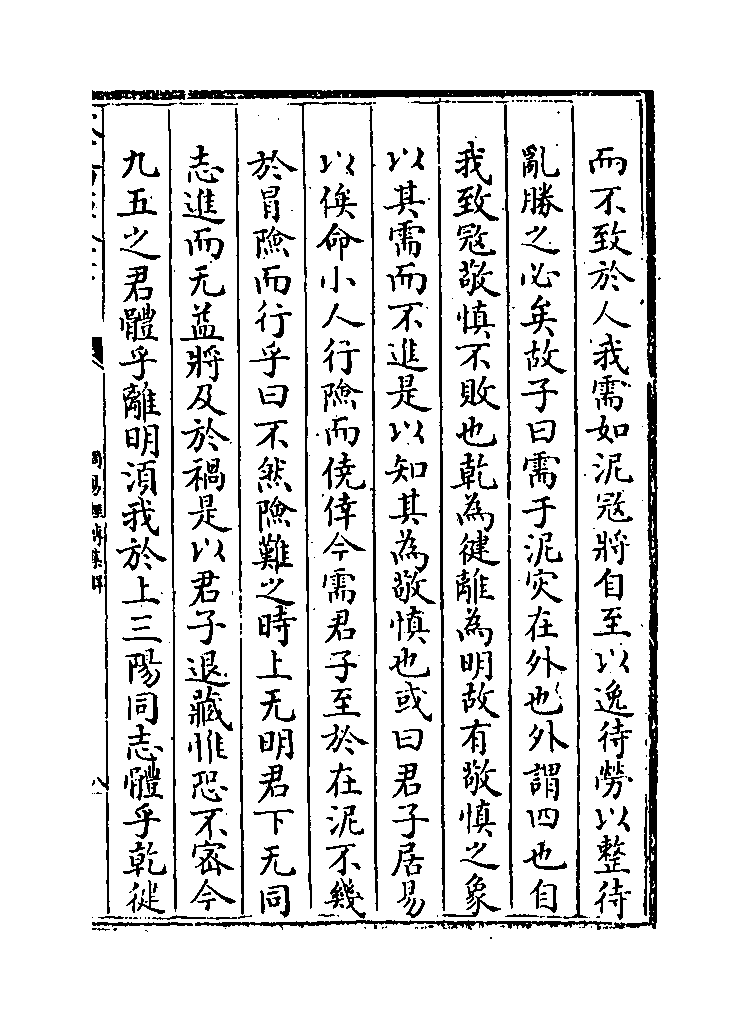 而不致於人我需如泥寇將自至以逸待勞以整待
亂勝之必矣故子曰需于泥灾在外也外謂四也自
我致寇敬慎不敗也乾為健離為明故有敬慎之象
以其需而不進是以知其為敬慎也或曰君子居易
以俟命小人行險而僥倖今需君子至於在泥不幾
於冒險而行乎曰不然險難之時上无明君下无同
志進而无益將及於禍是以君子退藏惟恐不宻今
九五之君體乎離明湏我於上三陽同志體乎乾健
周易經傳集解
八